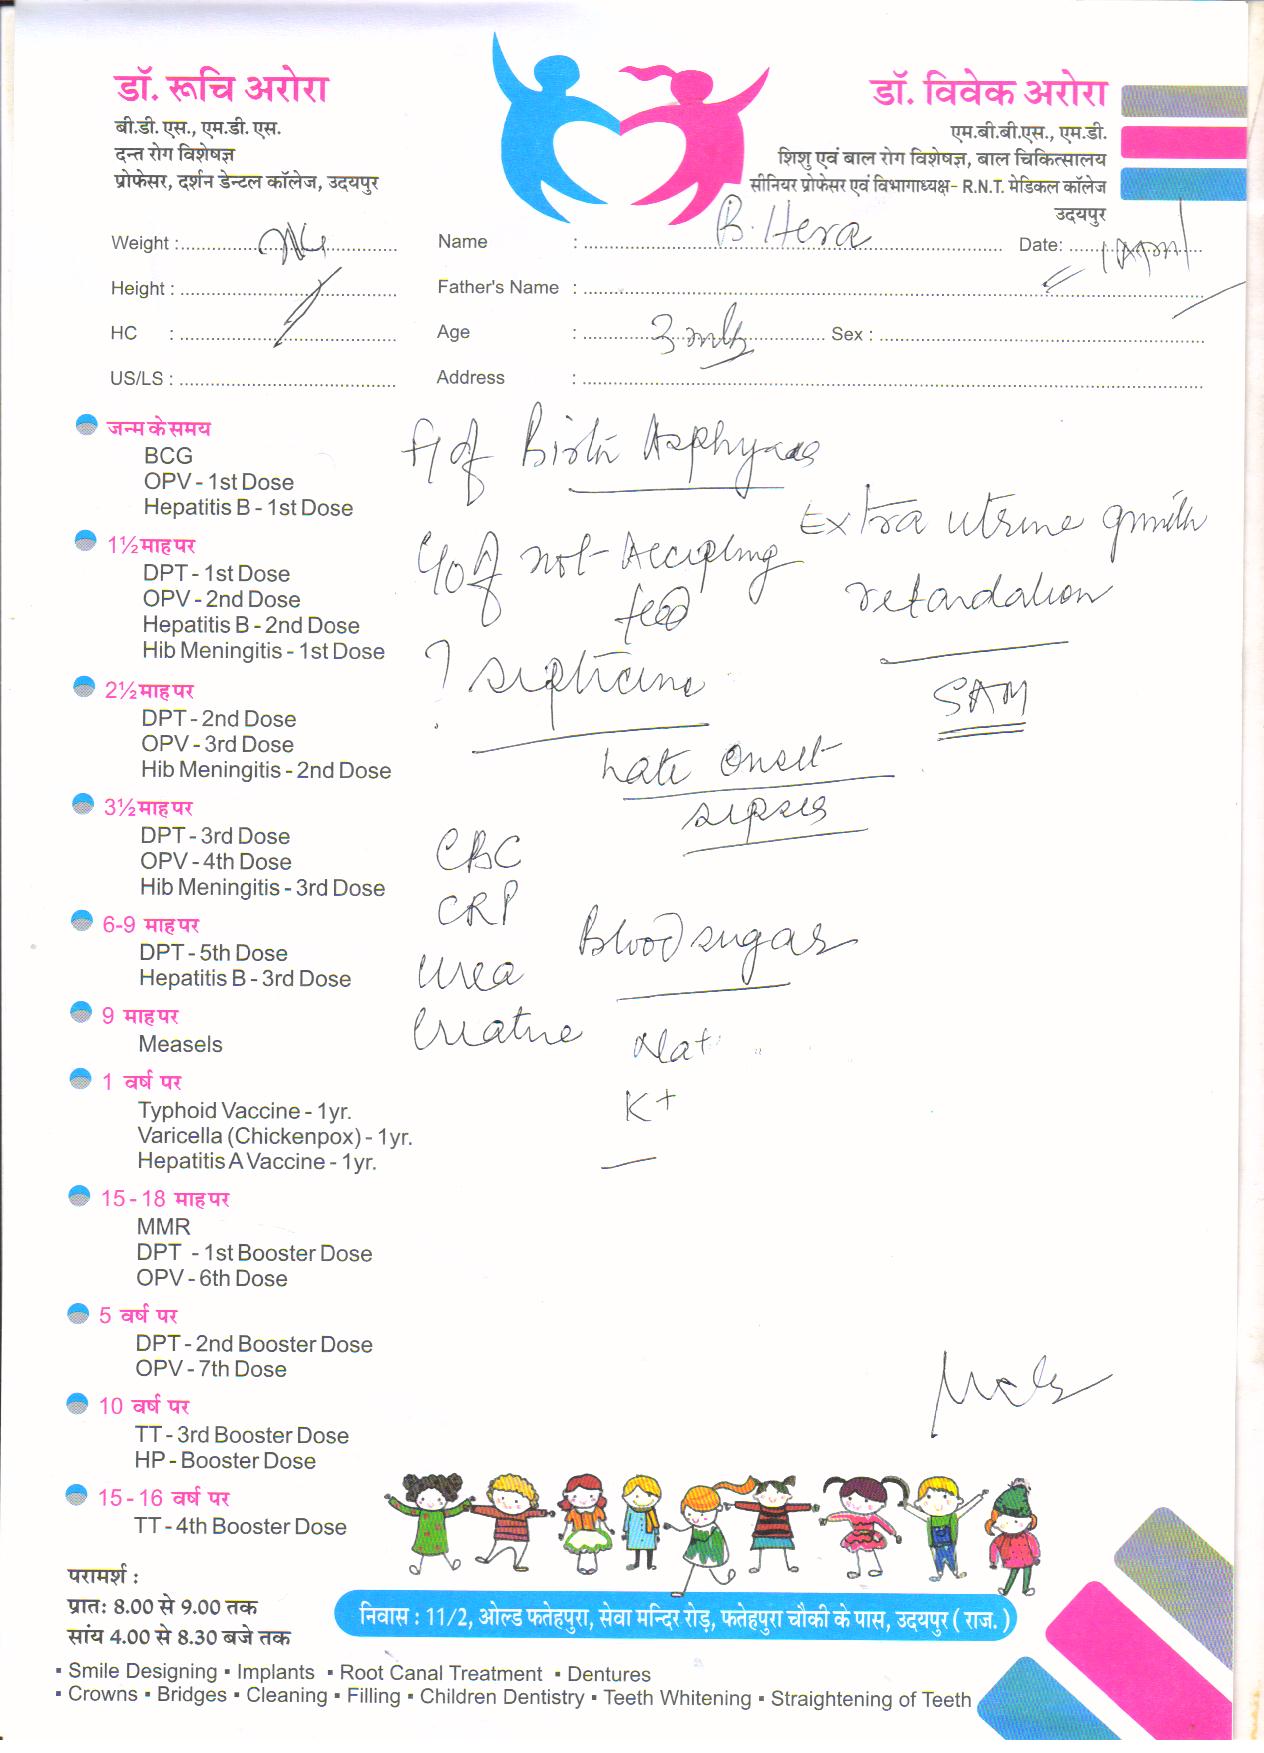 डॉ. रूचि अरोरा
बी.डी. एस., एम.डी. एस.
दन्त रोग विशेषज्ञ
प्रोफेसर, दर्शन डेन्टल कॉलेज, उदयपुर
डॉ. विवेक अरोरा
एम.बी.बी.एस., एम.डी.
शिशु एवं बाल रोग विशेषज्ञ, बाल चिकित्सालय
सीनियर प्रोफेसर एवं विभागाध्यक्ष- R.N.T. मेडिकल कॉलेज
उदयपुर
Weight : Name : B. Hera Date:
Height : Father's Name :
HC : Age : 3 mth Sex :
US/LS : Address :
जन्म के समय
BCG
OPV - 1st Dose
Hepatitis B - 1st Dose
1½ माह पर
DPT - 1st Dose
OPV - 2nd Dose
Hepatitis B - 2nd Dose
Hib Meningitis - 1st Dose
2½ माह पर
DPT - 2nd Dose
OPV - 3rd Dose
Hib Meningitis - 2nd Dose
3½ माह पर
DPT - 3rd Dose
OPV - 4th Dose
Hib Meningitis - 3rd Dose
6-9 माह पर
DPT - 5th Dose
Hepatitis B - 3rd Dose
9 माह पर
Measels
1 वर्ष पर
Typhoid Vaccine - 1yr.
Varicella (Chickenpox) - 1yr.
Hepatitis A Vaccine - 1yr.
15-18 माह पर
MMR
DPT - 1st Booster Dose
OPV - 6th Dose
5 वर्ष पर
DPT - 2nd Booster Dose
OPV - 7th Dose
10 वर्ष पर
TT - 3rd Booster Dose
HP - Booster Dose
15-16 वर्ष पर
TT - 4th Booster Dose
of Birth
Extra utrine growth
retardation
SAM
of not Accepting
feed
?
Late Onset
sepsis
CBC
CRP
Blood sugar
urea
Na+
K+
परामर्श :
प्रातः 8.00 से 9.00 तक
सांय 4.00 से 8.30 बजे तक
निवास : 11/2, ओल्ड फतेहपुरा, सेवा मन्दिर रोड़, फतेहपुरा चौकी के पास, उदयपुर ( राज. )
▪ Smile Designing ▪ Implants ▪ Root Canal Treatment ▪ Dentures
▪ Crowns ▪ Bridges ▪ Cleaning ▪ Filling ▪ Children Dentistry ▪ Teeth Whitening ▪ Straightening of Teeth